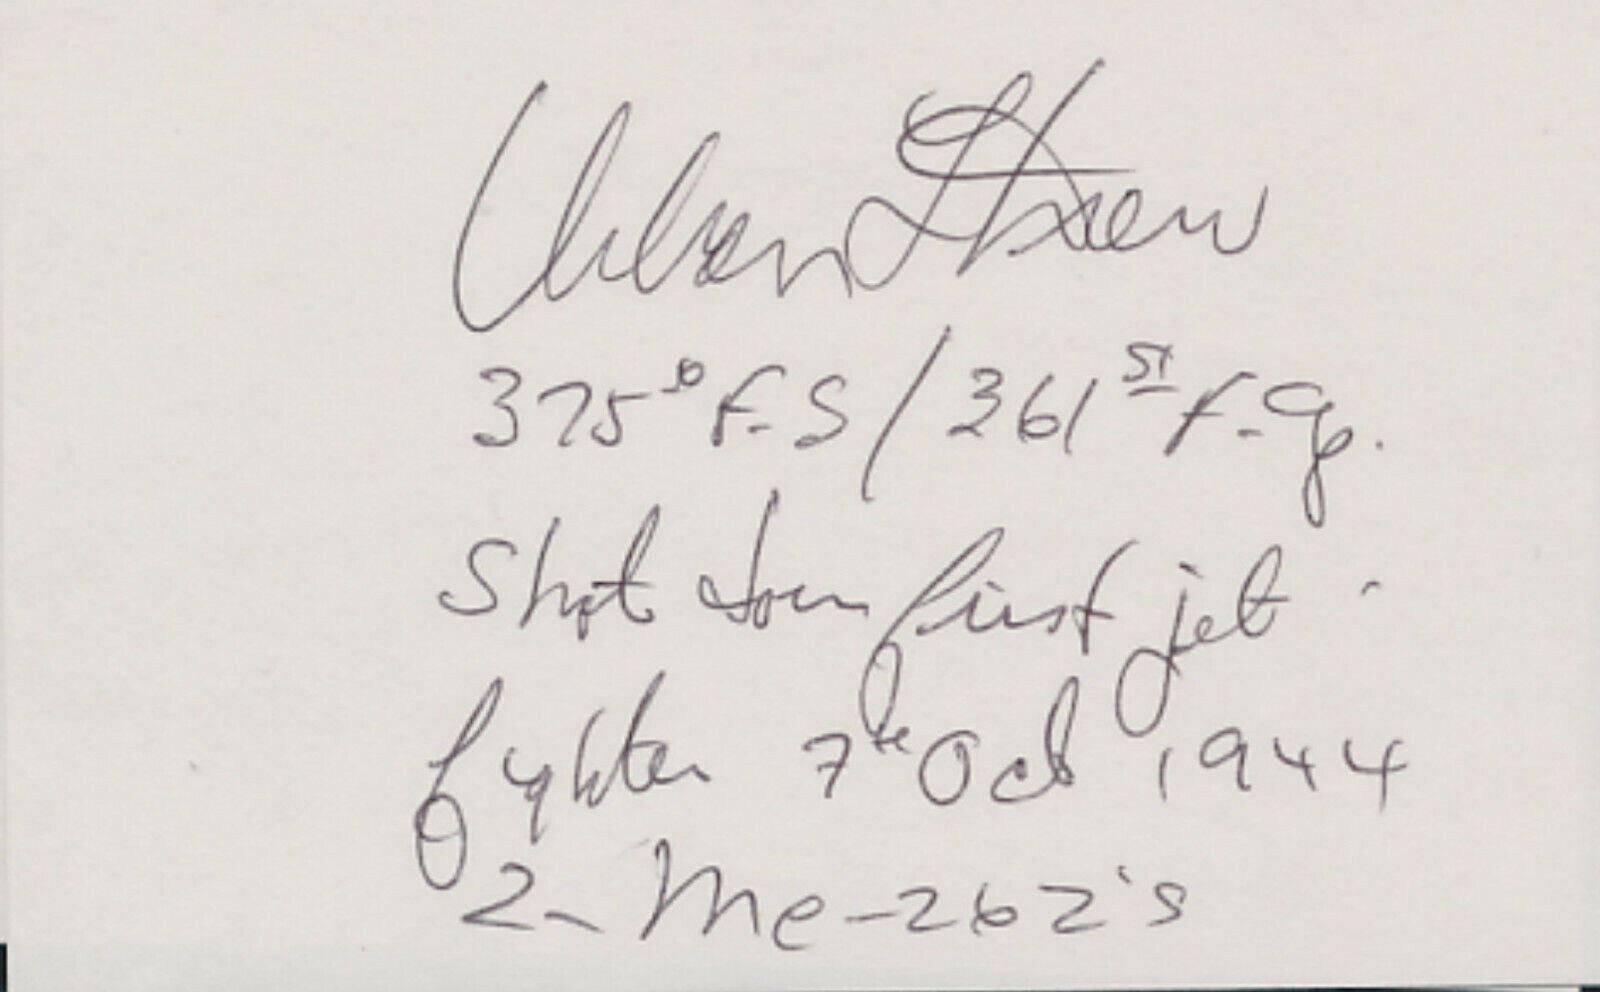 Urban Drew
375th F.S / 361st F. Gp.
Shot down first jet
fighter 7th Oct 1944
2- Me-262's